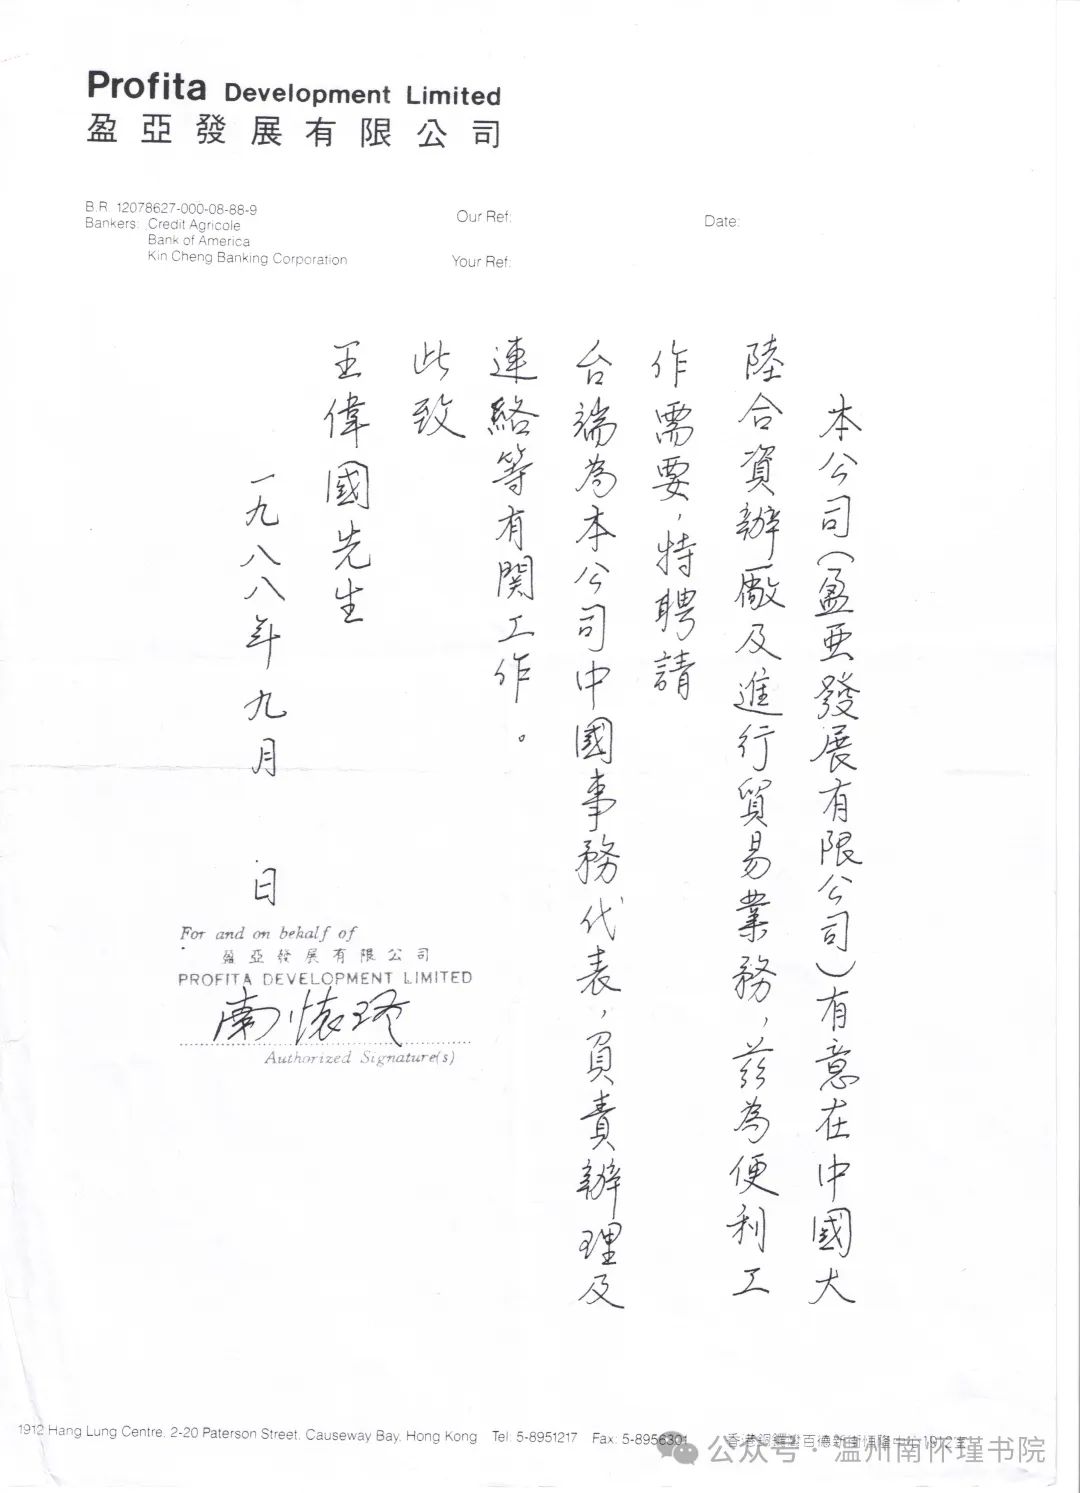 Profita Development Limited
盈亞發展有限公司
B.R. 12078627-000-08-88-9
Bankers: Credit Agricole
Bank of America
Kin Cheng Banking Corporation
Our Ref:
Your Ref:
Date:
本公司（盈亞發展有限公司）有意在中國大
陸合資辦廠及進行貿易業務，茲為便利工
作需要，特聘請
台端為本公司中國事務代表，負責辦理及
連絡等有関工作。
此致
王偉國先生
一九八八年九月 日
For and on behalf of
盈亞發展有限公司
PROFITA DEVELOPMENT LIMITED
南懷瑾
Authorized Signature(s)
1912 Hang Lung Centre, 2-20 Paterson Street, Causeway Bay, Hong Kong Tel: 5-8951217 Fax: 5-8956301 香港銅鑼灣百德新街恆隆中心1912室
公众号·温州南怀瑾书院